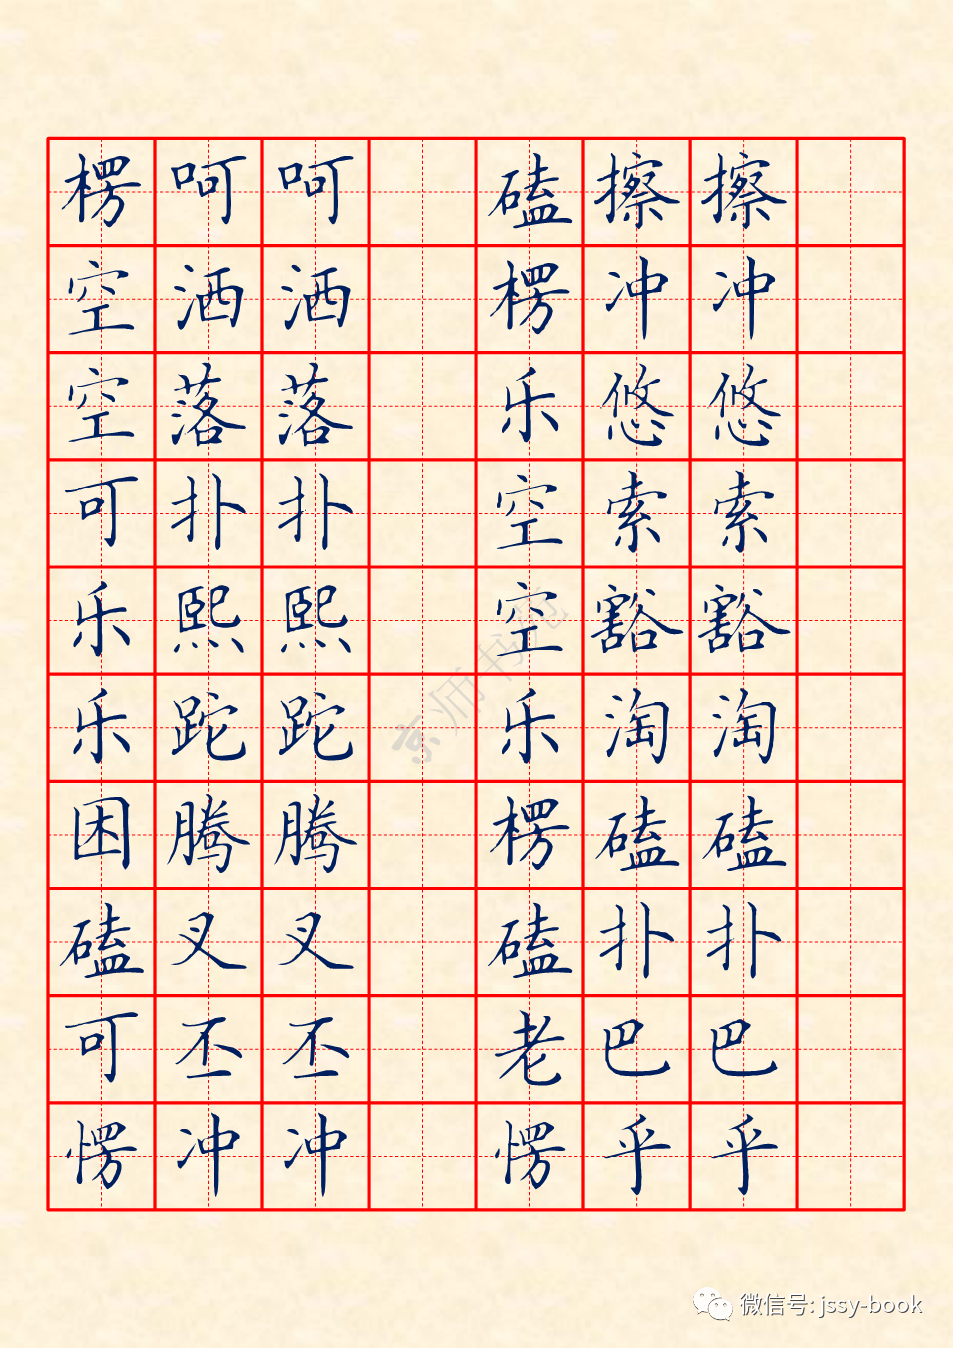 楞呵呵 磕擦擦
空洒洒 楞冲冲
空落落 乐悠悠
可扑扑 空索索
乐熙熙 空豁豁
乐跎跎 乐淘淘
困腾腾 楞磕磕
磕叉叉 磕扑扑
可丕丕 老巴巴
愣冲冲 愣乎乎
京师书苑
微信号: jssy-book